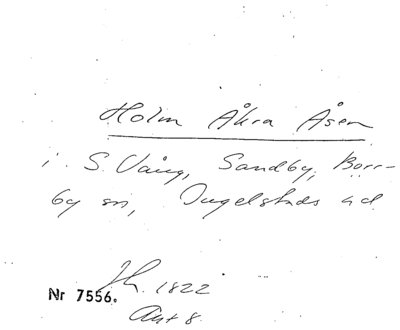 Holm Åkra Åsen
i S. Vång, Sandby, Borr-
by sn, Ingelstads hd
Jh. 1822
Nr 7556.
Akt 8.